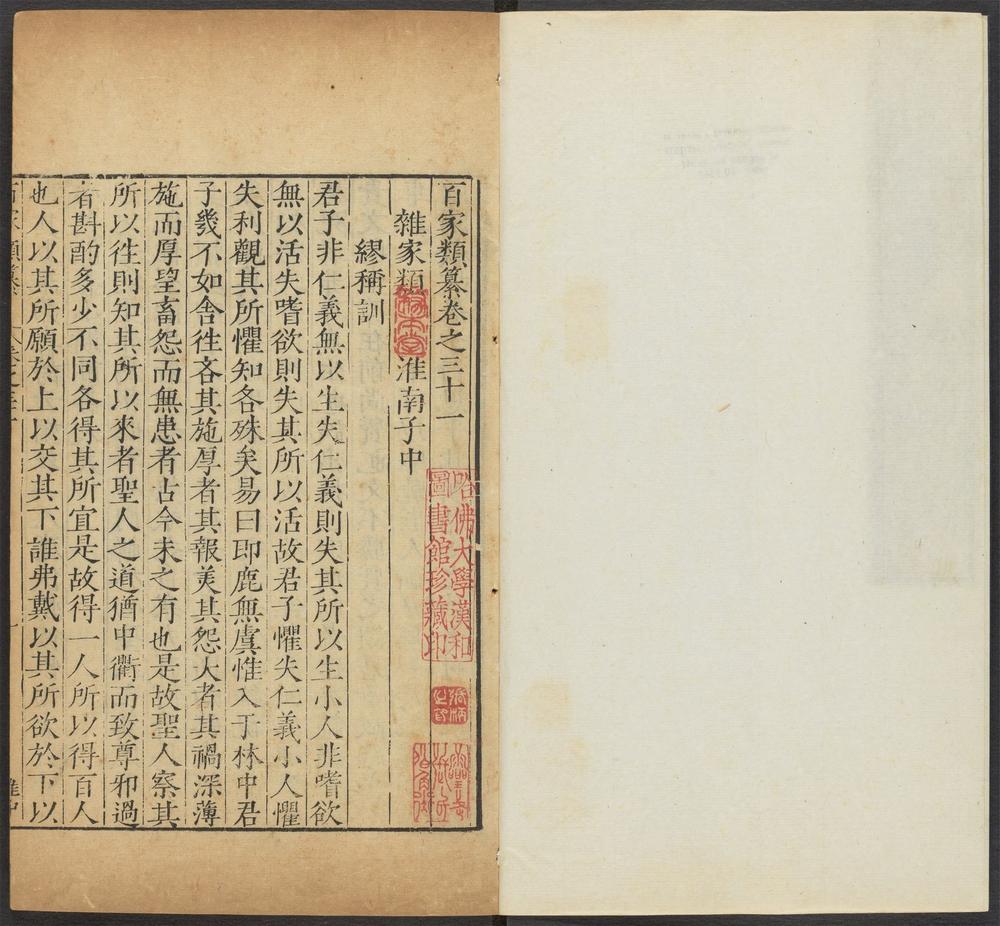 百家類纂卷之三十一
雜家類 淮南子中
繆稱訓
君子非仁義無以生失仁義則失其所以生小人非嗜欲
無以活失嗜欲則失其所以活故君子懼失仁義小人懼
失利觀其所懼知各殊矣易曰即鹿無虞惟入于林中君
子幾不如舍往吝其施厚者其報美其怨大者其禍深薄
施而厚望畜怨而無患者古今未之有也是故聖人察其
所以徃則知其所以來者聖人之道猶中衢而致尊邪過
者斟酌多少不同各得其所宜是故得一人所以得百人
也人以其所願於上以交其下誰弗戴以其所欲於下以
哈佛大學漢和
圖書館珍藏印